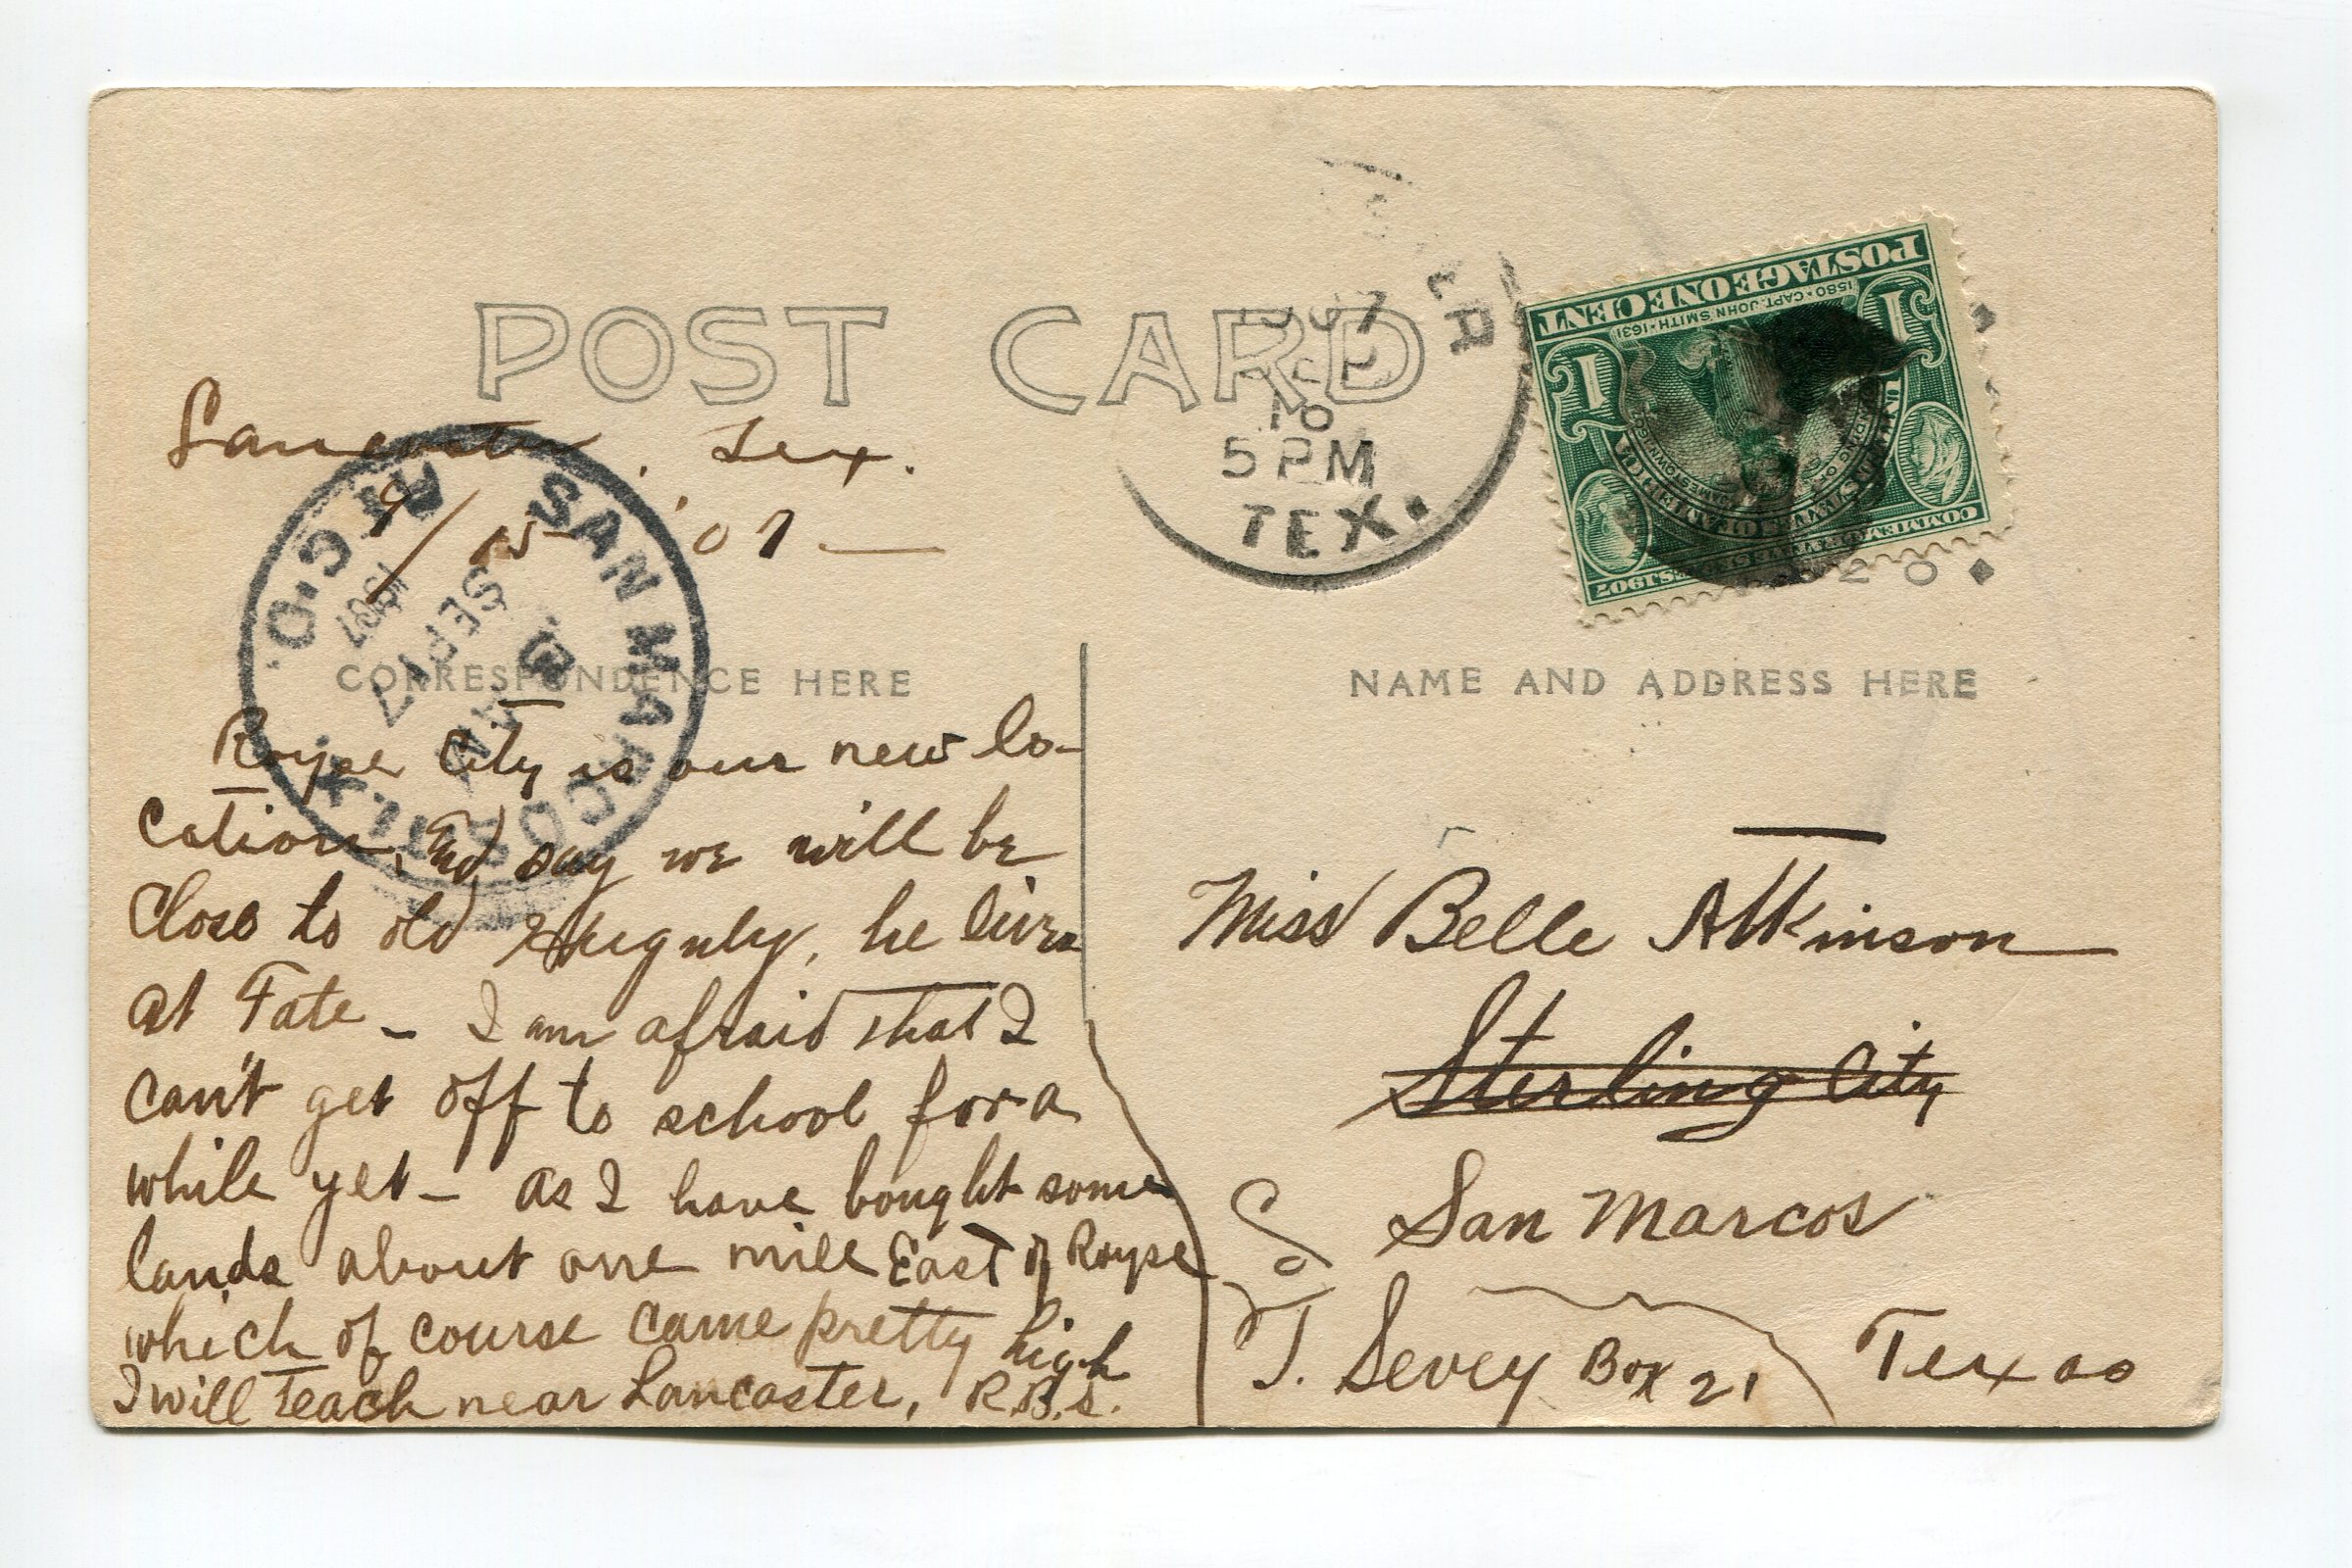 POST CARD
Lancaster, Tex.
9/15 '07
CORRESPONDENCE HERE
Royse City is our new lo-
cation, and say we will be
close to old, he lives
at Fate - I am afraid that I
can't get off to school for a
while yet - as I have bought some
lands about one mile East of Royse
which of course came pretty high
I will teach near Lancaster, R.B.S.
SAN MARCOS, TEX. REC'D.
SEP 17
AM
1907
1907
SEP
16
5 PM
TEX.
POSTAGE ONE CENT
1580 · CAPT. JOHN SMITH · 1631
1 1
UNITED STATES OF AMERICA
COMMEMORATIVE SERIES 1907
NAME AND ADDRESS HERE
Miss Belle Atkinson
Sterling City
San Marcos
c/o
J. Sevey Box 21
Texas